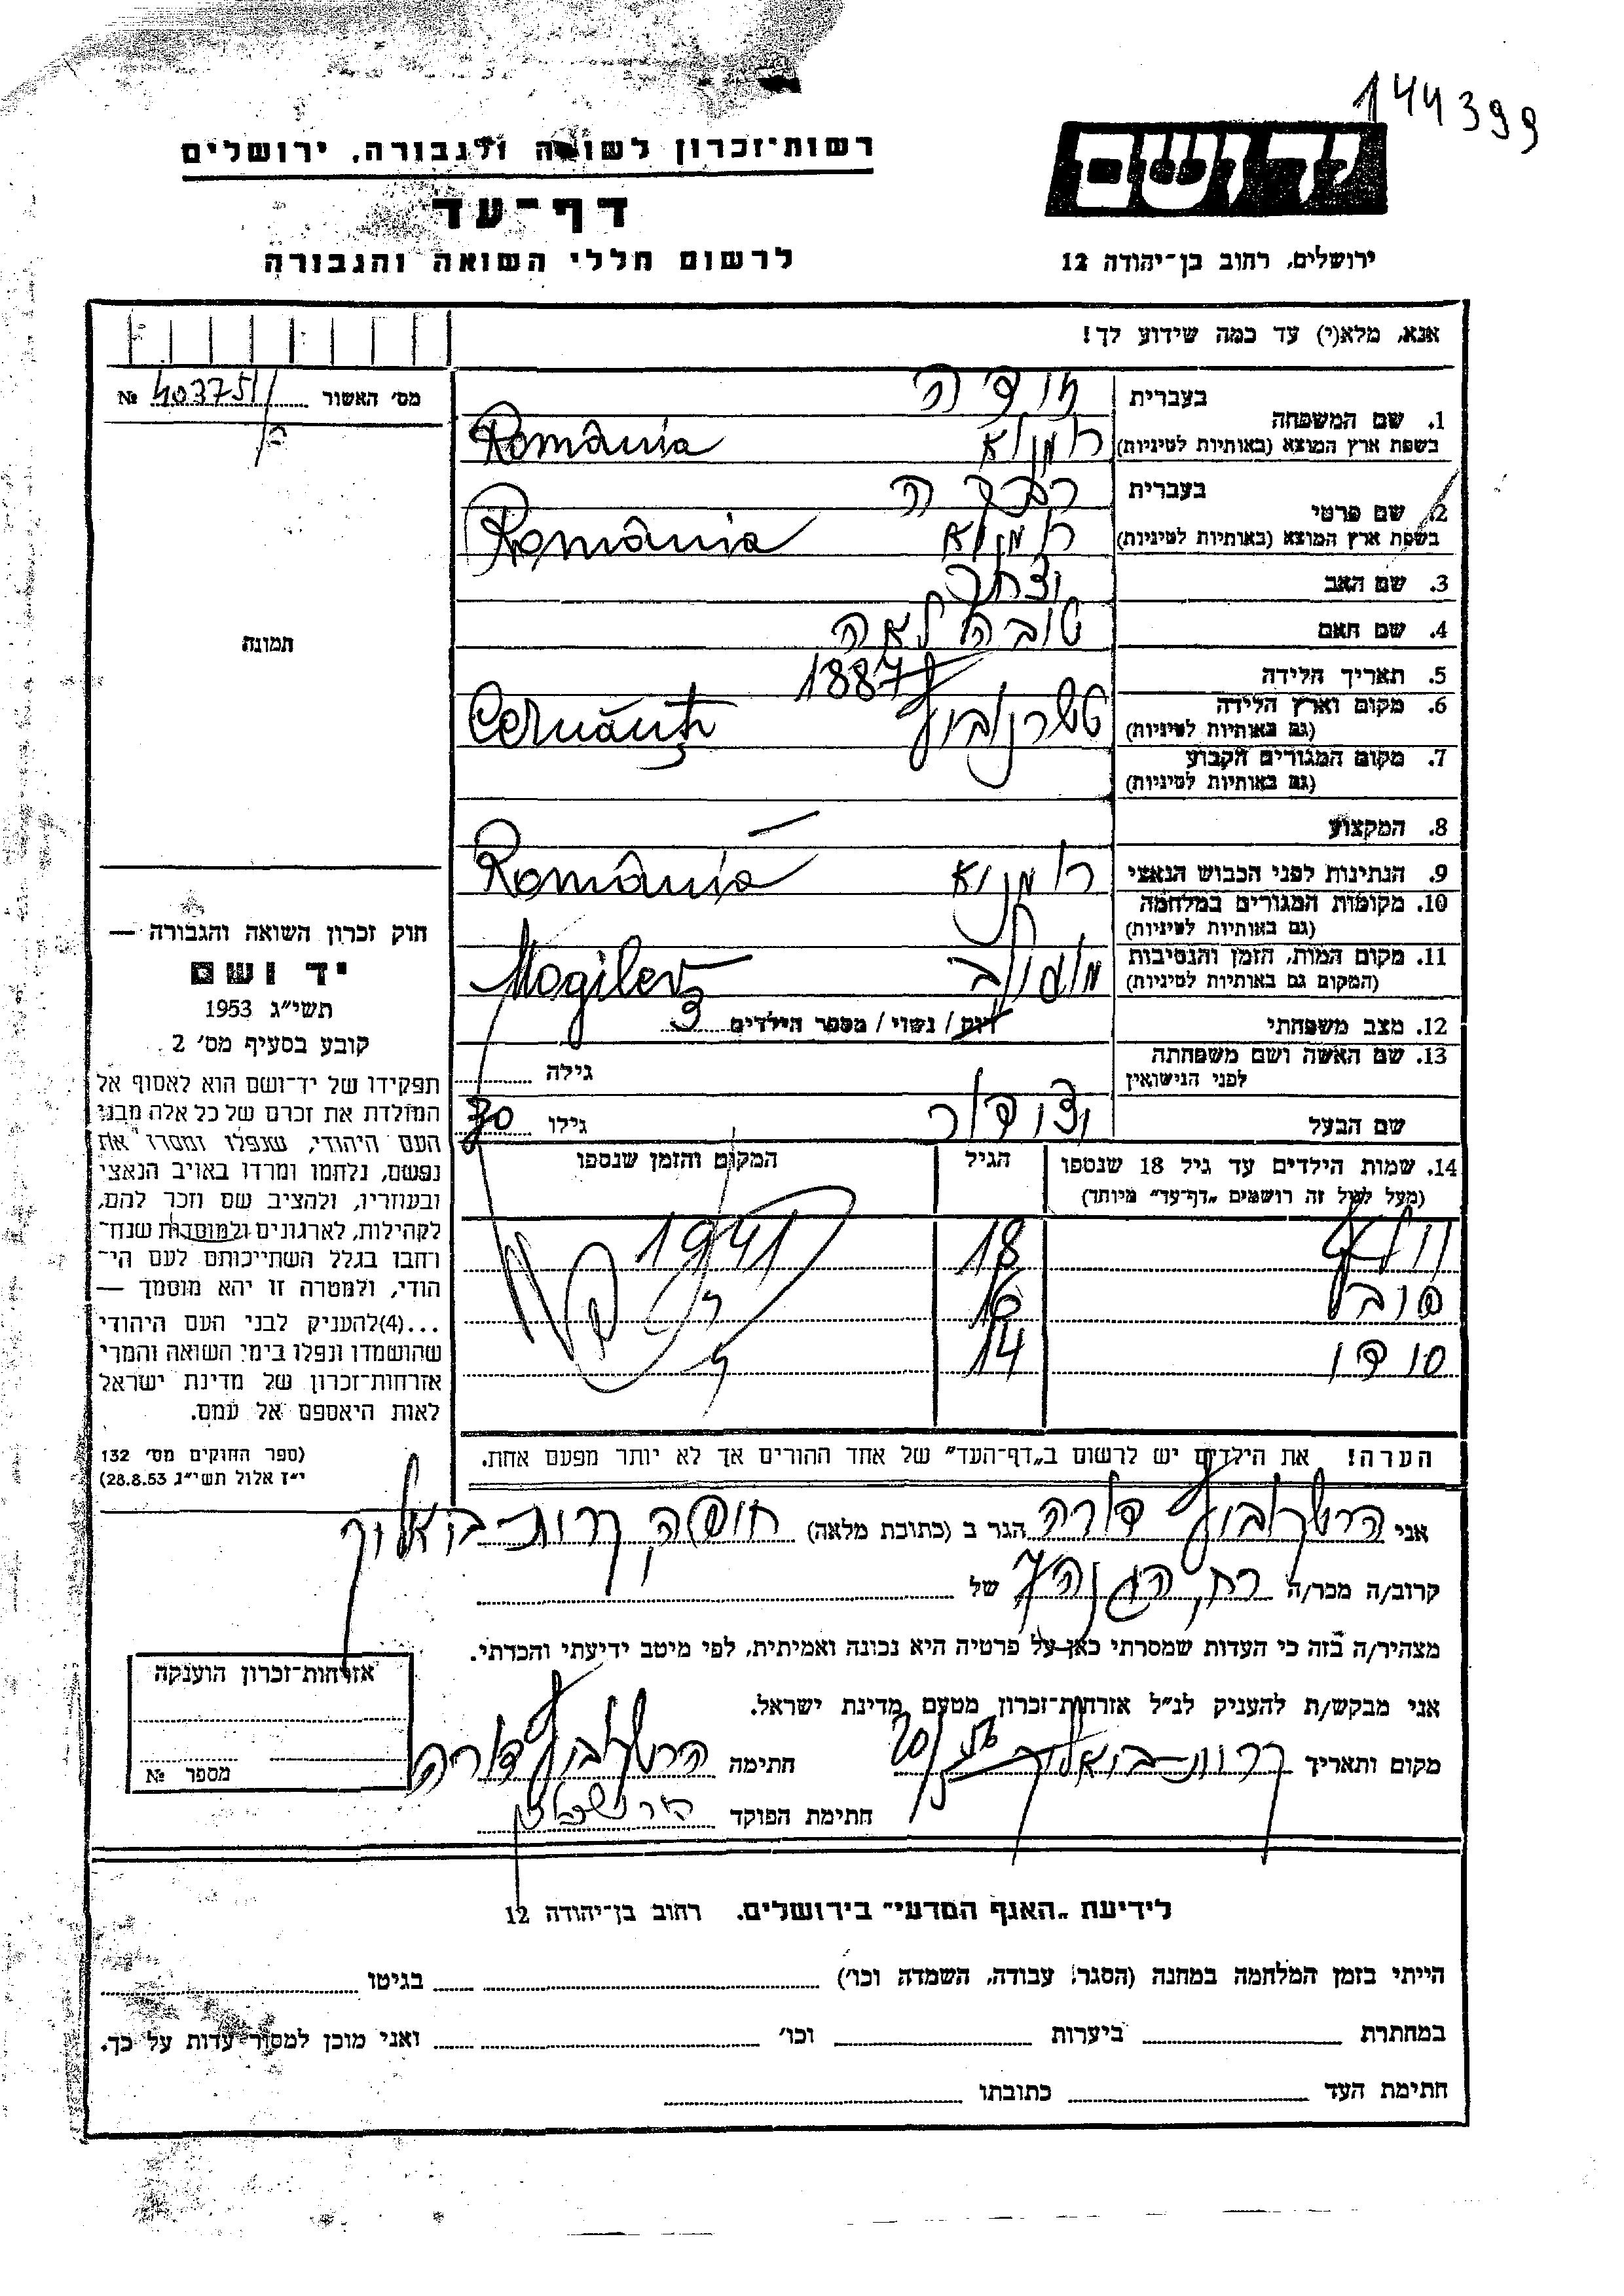 144399
רשות־זכרון לשואה ולגבורה, ירושלים
יד ושם
דף־עד
לרשום חללי השואה והגבורה
ירושלים, רחוב בן־יהודה 12
אנא, מלא(י) עד כמה שידוע לך!
מס׳ האשור № 403751
1. שם המשפחה בעברית
בשפת ארץ המוצא (באותיות לטיניות) România
2. שם פרטי בעברית רבקה
בשפת ארץ המוצא (באותיות לטיניות) România
3. שם האב
4. שם האם טובה לאה
5. תאריך הלידה 1887
6. מקום וארץ הלידה
(גם באותיות לטיניות) Cernăuți
7. מקום המגורים הקבוע
(גם באותיות לטיניות)
8. המקצוע
9. הנתינות לפני הכבוש הנאצי România
10. מקומות המגורים במלחמה
(גם באותיות לטיניות)
11. מקום המות, הזמן והנסיבות
(המקום גם באותיות לטיניות) Mogilev
12. מצב משפחתי רוק / נשוי / מספר הילדים 3
13. שם האשה ושם משפחתה
לפני הנישואין גילה
שם הבעל גילו 70
14. שמות הילדים עד גיל 18 שנספו הגיל המקום והזמן שנספו
(מעל לגיל זה רושמים „דף־עד” מיוחד)
18 1941
16
14
הערה! את הילדים יש לרשום ב„דף־העד” של אחד ההורים אך לא יותר מפעם אחת.
תמונה
חוק זכרון השואה והגבורה —
יד ושם
תשי״ג 1953
קובע בסעיף מס׳ 2
תפקידו של יד־ושם הוא לאסוף אל
המולדת את זכרם של כל אלה מבני
העם היהודי, שנפלו ומסרו את
נפשם, נלחמו ומרדו באויב הנאצי
ובעוזריו, ולהציב שם וזכר להם,
לקהילות, לארגונים ולמוסדות שנח־
רחבו בגלל השתייכותם לעם הי־
הודי, ולמטרה זו יהא מוסמך —
...(4)להעניק לבני העם היהודי
שהושמדו ונפלו בימי השואה והמרי
אזרחות־זכרון של מדינת ישראל
לאות היאספם אל עמם.
(ספר החוקים מס׳ 132
י״ז אלול תשי״ג 28.8.53)
אני דורה הגר ב (כתובת מלאה) חיפה קרית־ביאליק
קרוב/ה מכר/ה של
מצהיר/ה בזה כי העדות שמסרתי כאן על פרטיה היא נכונה ואמיתית, לפי מיטב ידיעתי והכרתי.
אני מבקש/ת להעניק לנ״ל אזרחות־זכרון מטעם מדינת ישראל.
מקום ותאריך קרית־ביאליק חתימה דורה
חתימת הפוקד
אזרחות־זכרון הוענקה
מספר №
לידיעת „האגף המדעי” בירושלים. רחוב בן־יהודה 12
הייתי בזמן המלחמה במחנה (הסגר, עבודה, השמדה וכו׳) בגיטו
במחתרת ביערות וכו׳ ואני מוכן למסור עדות על כך.
חתימת העד כתובתו